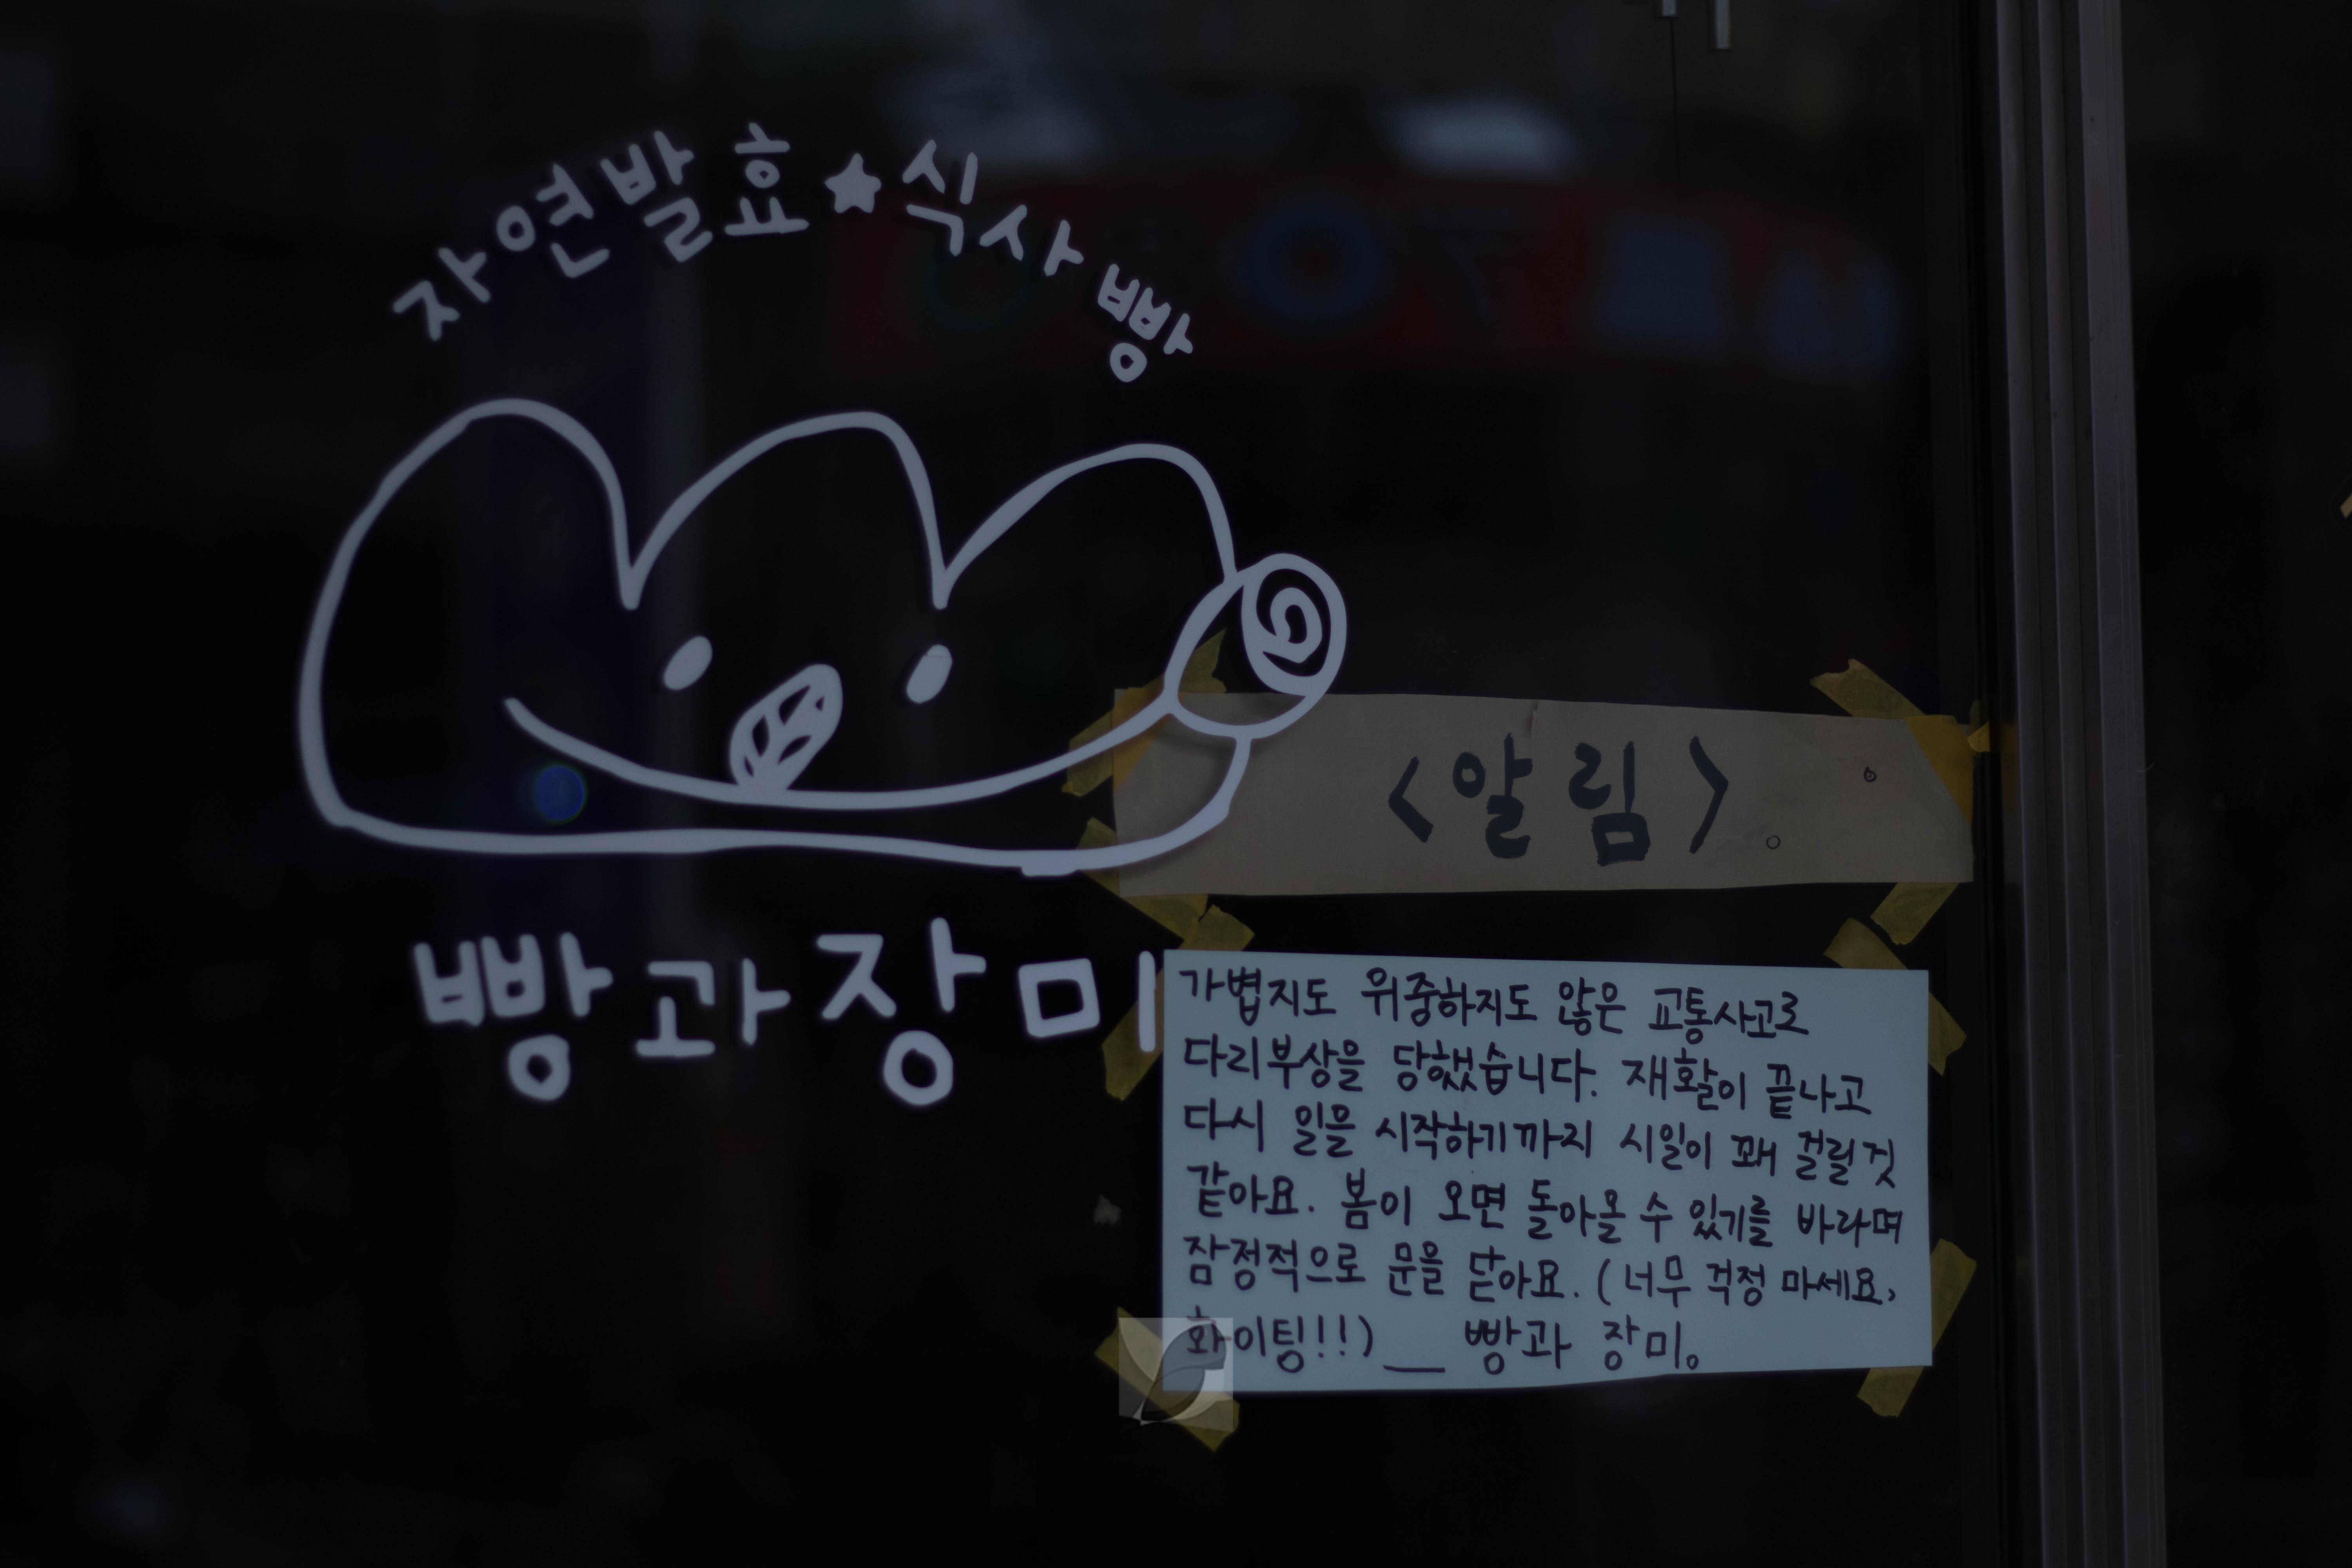 자연발효★식사빵
빵과장미
<알림>
가볍지도 위중하지도 않은 교통사고로
다리부상을 당했습니다. 재활이 끝나고
다시 일을 시작하기까지 시일이 꽤 걸릴것
같아요. 봄이 오면 돌아올 수 있기를 바라며
잠정적으로 문을 닫아요. (너무 걱정 마세요,
화이팅!!)__ 빵과 장미。